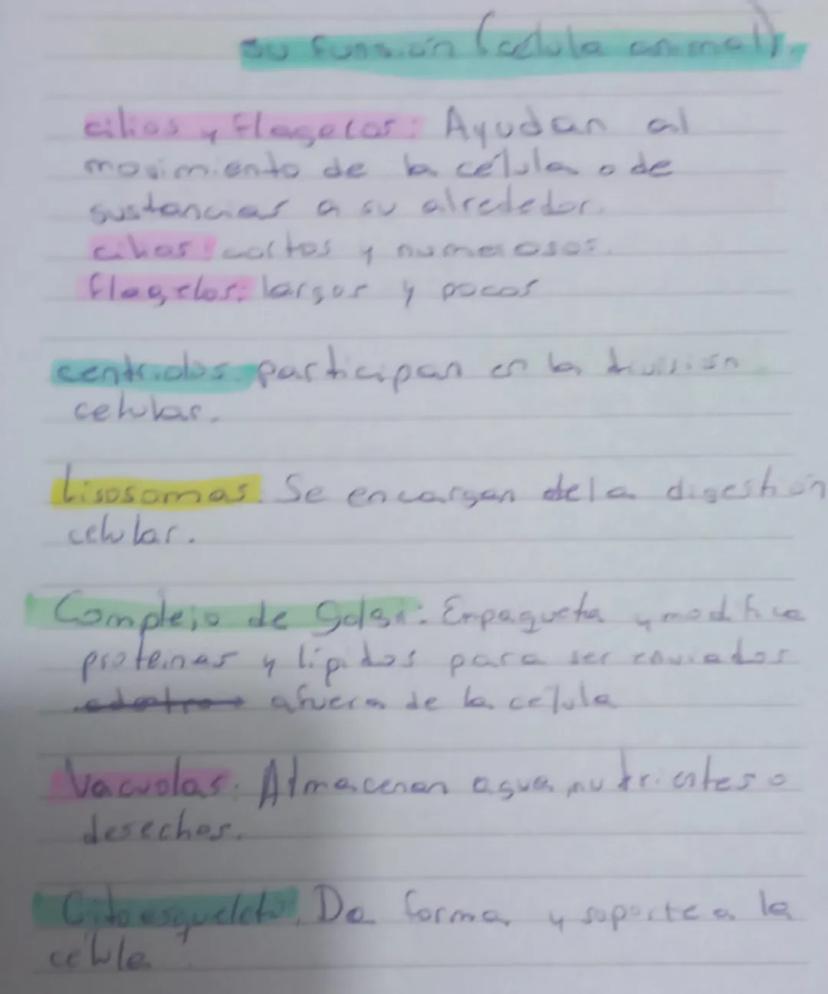 su función (celula animal).
cilios y flagelos: Ayudan al
movimiento de la célula o de
sustancias a su alrededor.
cilios: cortos y numerosos.
flagelos: largos y pocos
centriolos. participan en la división
celular.
Lisosomas. Se encargan de la digestión
celular.
Complejo de Golgi: Empaqueta y modifica
proteínas y lípidos para ser enviados
afuera de la célula
Vacuolas. Almacenan agua, nutrientes o
desechos.
Citoesqueleto. Da forma y soporte a la
célula